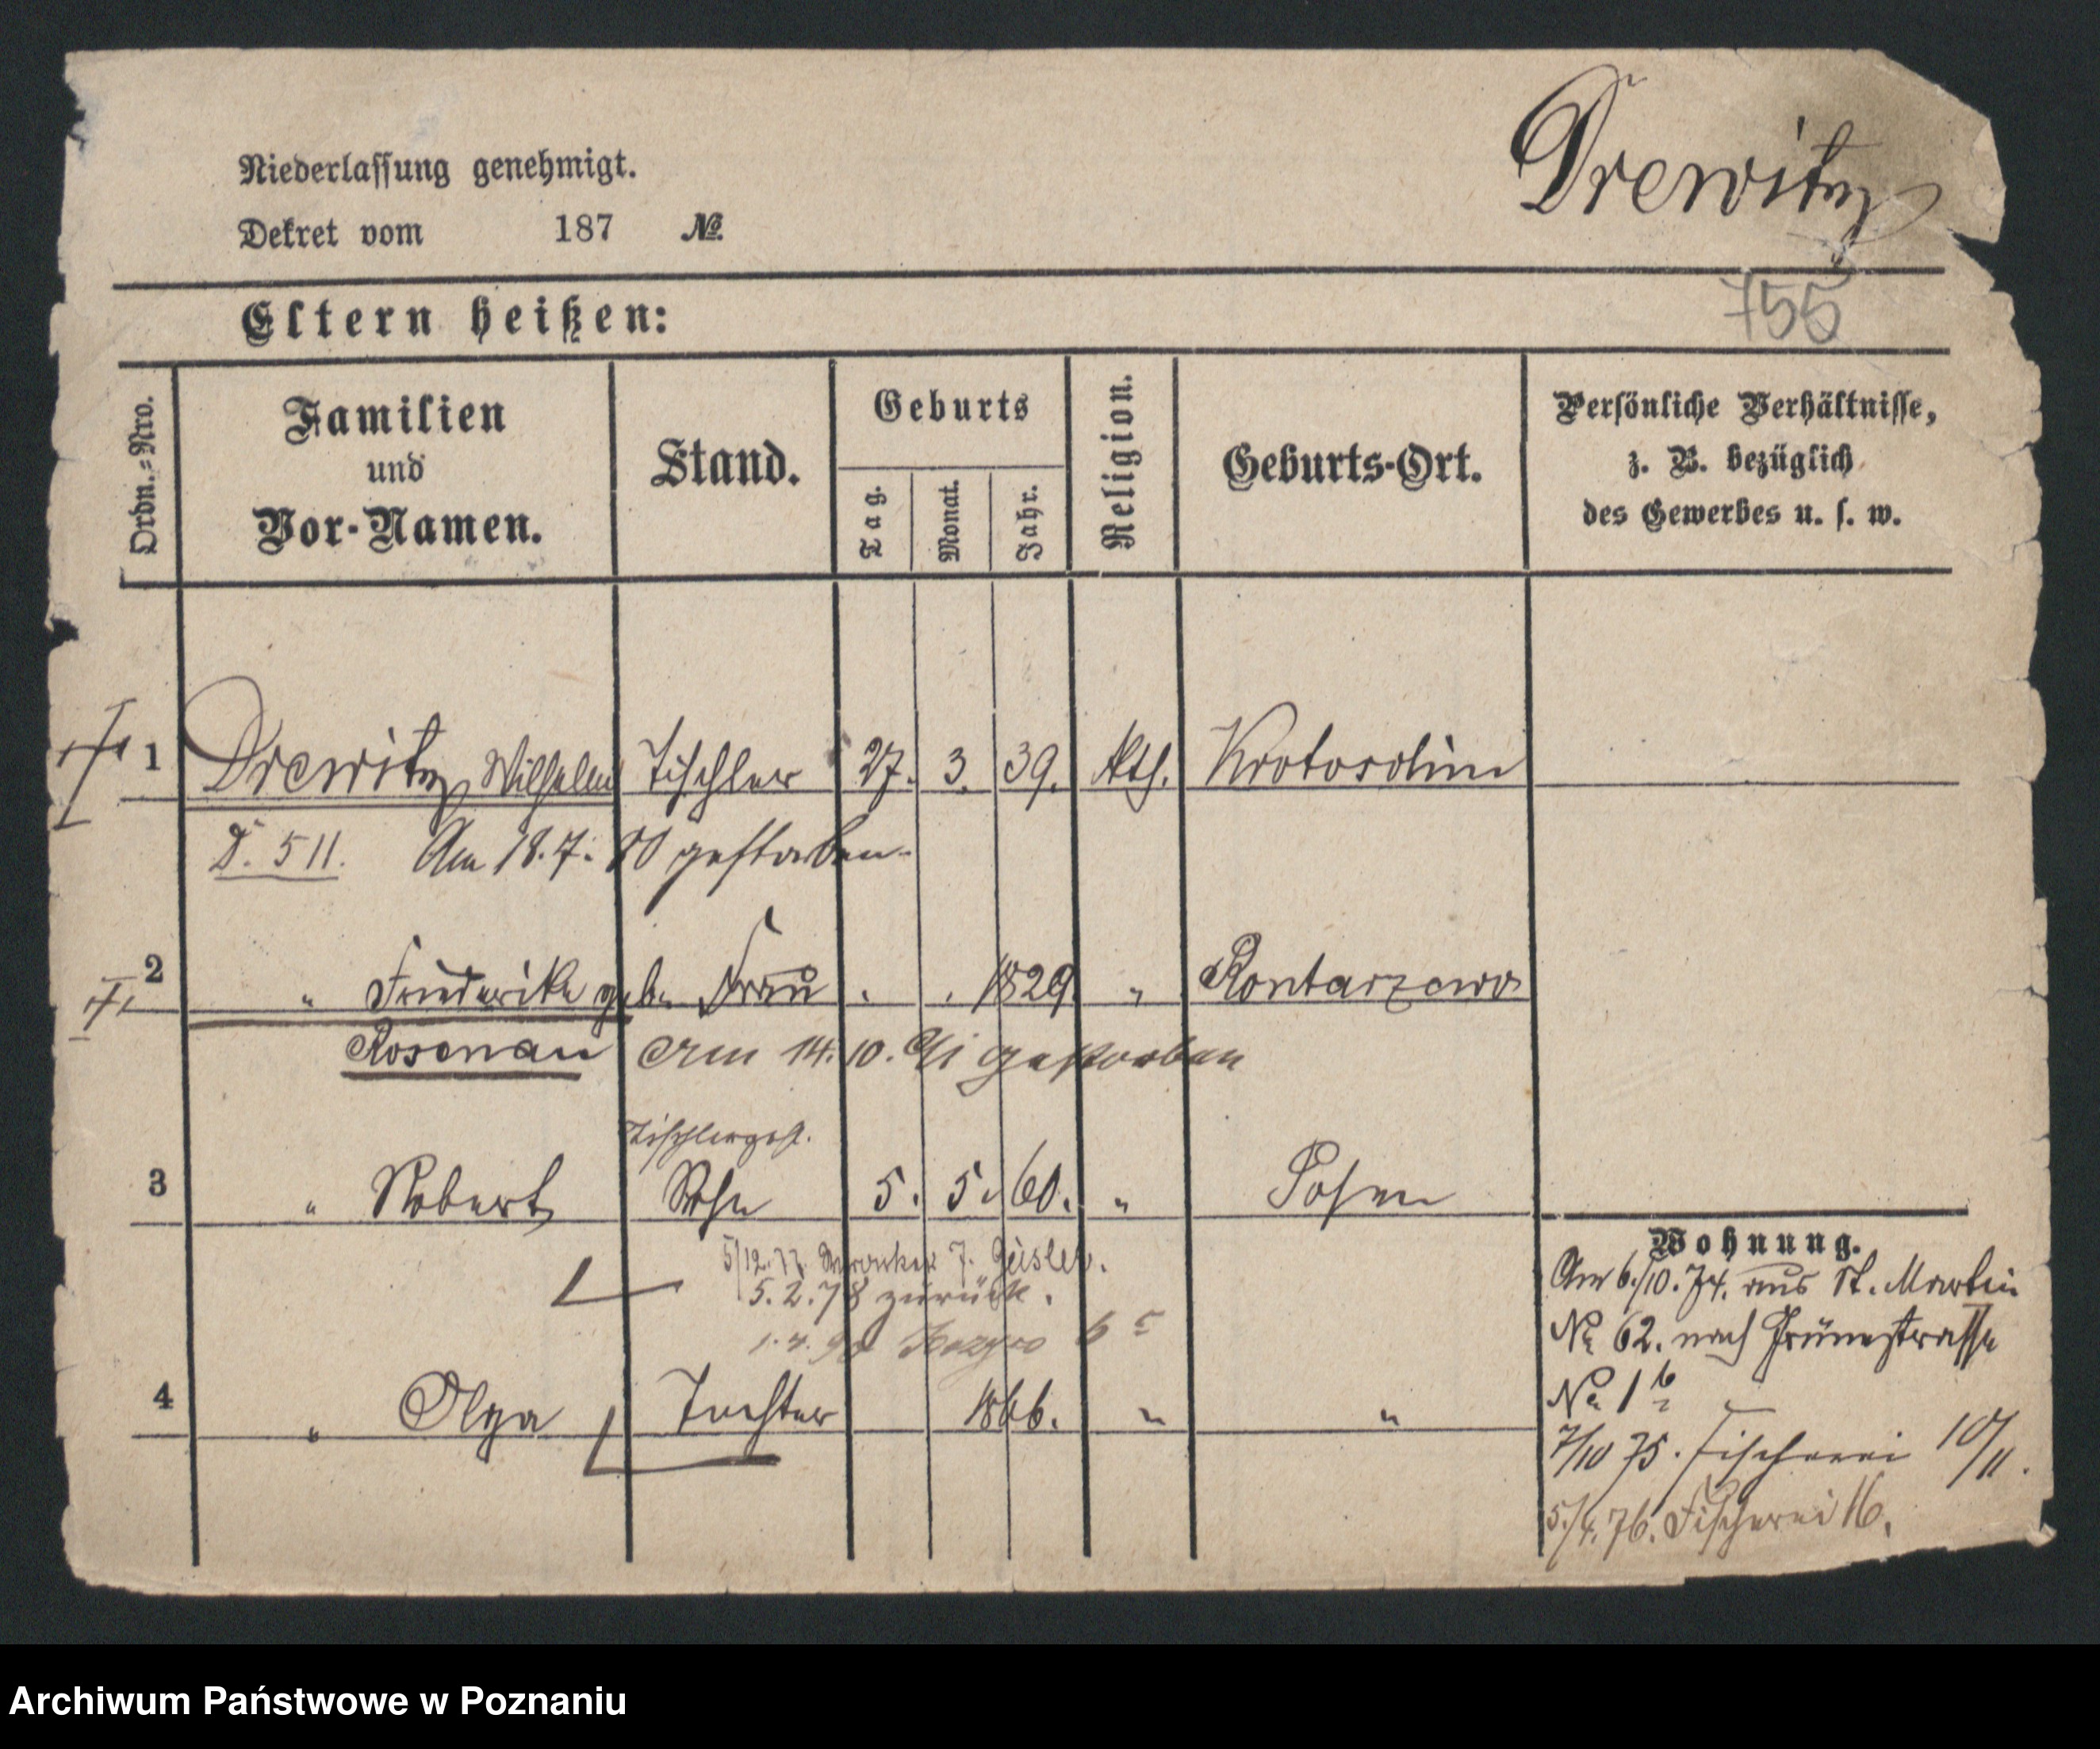 Drewitz
Niederlassung genehmigt.
Dekret vom 187 №
755
Eltern heißen:
Ordn.-Nro.
Familien
und
Vor-Namen.
Stand.
Geburts
Tag.
Monat.
Jahr.
Religion.
Geburts-Ort.
Persönliche Verhältnisse,
z. B. bezüglich
des Gewerbes u. s. w.
1 Drewitz Wilhelm Tischler 27. 3. 39. Kth. Krotoschin
D. 511. Am 18. 7. 80 gestorben.
2 " Friederike geb. Frau . . 1829 " Kontarzewo
Rosenau Am 14. 10. 91 gestorben
Tischlerges.
3 " Robert Sohn 5. 5. 60. " Posen
5/12. 77. 7. Geisler.
5. 2. 78 zurück.
1. 4. 90
4 " Olga Tochter 1866. " "
Wohnung.
Am 6./10. 74. aus St. Martin
No 62. nach Grünestrasse
No 1 b
7/10 75. Fischerei 10/11.
5./4. 76. Fischerei 16.
Archiwum Państwowe w Poznaniu